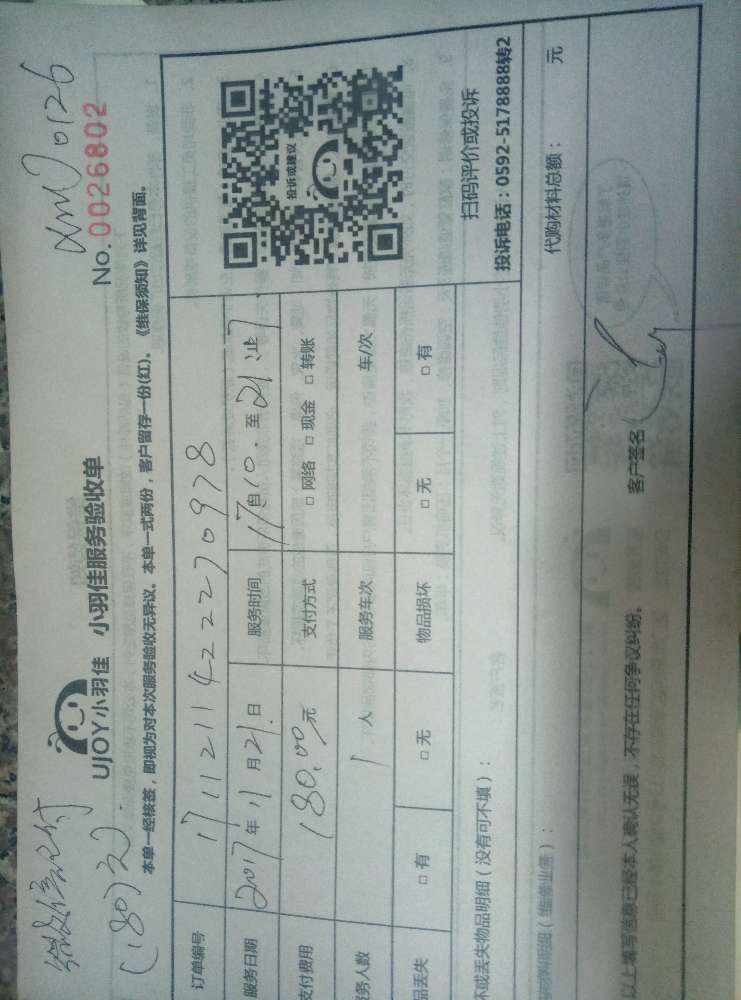 (180元)
XM00126
No.0026802
UJOY小羽佳 小羽佳服务验收单
本单一经核签，即视为对本次服务验收无异议。本单一式两份，客户留存一份(红)。《维保须知》详见背面。
订单编号 171121142223 0978
服务日期 2017年11月21日 服务时间 自 至 止
支付费用 180.00元 支付方式 □网络 □现金 □转账
务人数 1人 服务车次 车/次
品丢失 □有 □无 物品损坏 □无 □有
投诉或建议
扫码评价或投诉
投诉电话：0592-5178888转2
不或丢失物品明细(没有可不填)：
材料明细(维修业务)： 代购材料总额： 元
以上填写信息已经本人确认无误，不存在任何争议纠纷。 客户签名